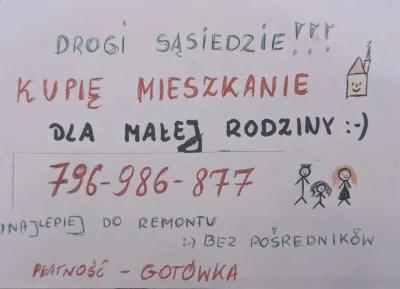 DROGI SĄSIEDZIE!!!
KUPIĘ MIESZKANIE
DLA MAŁEJ RODZINY :-)
796-986-877
NAJLEPIEJ DO REMONTU
:-) BEZ POŚREDNIKÓW
PŁATNOŚĆ - GOTÓWKA